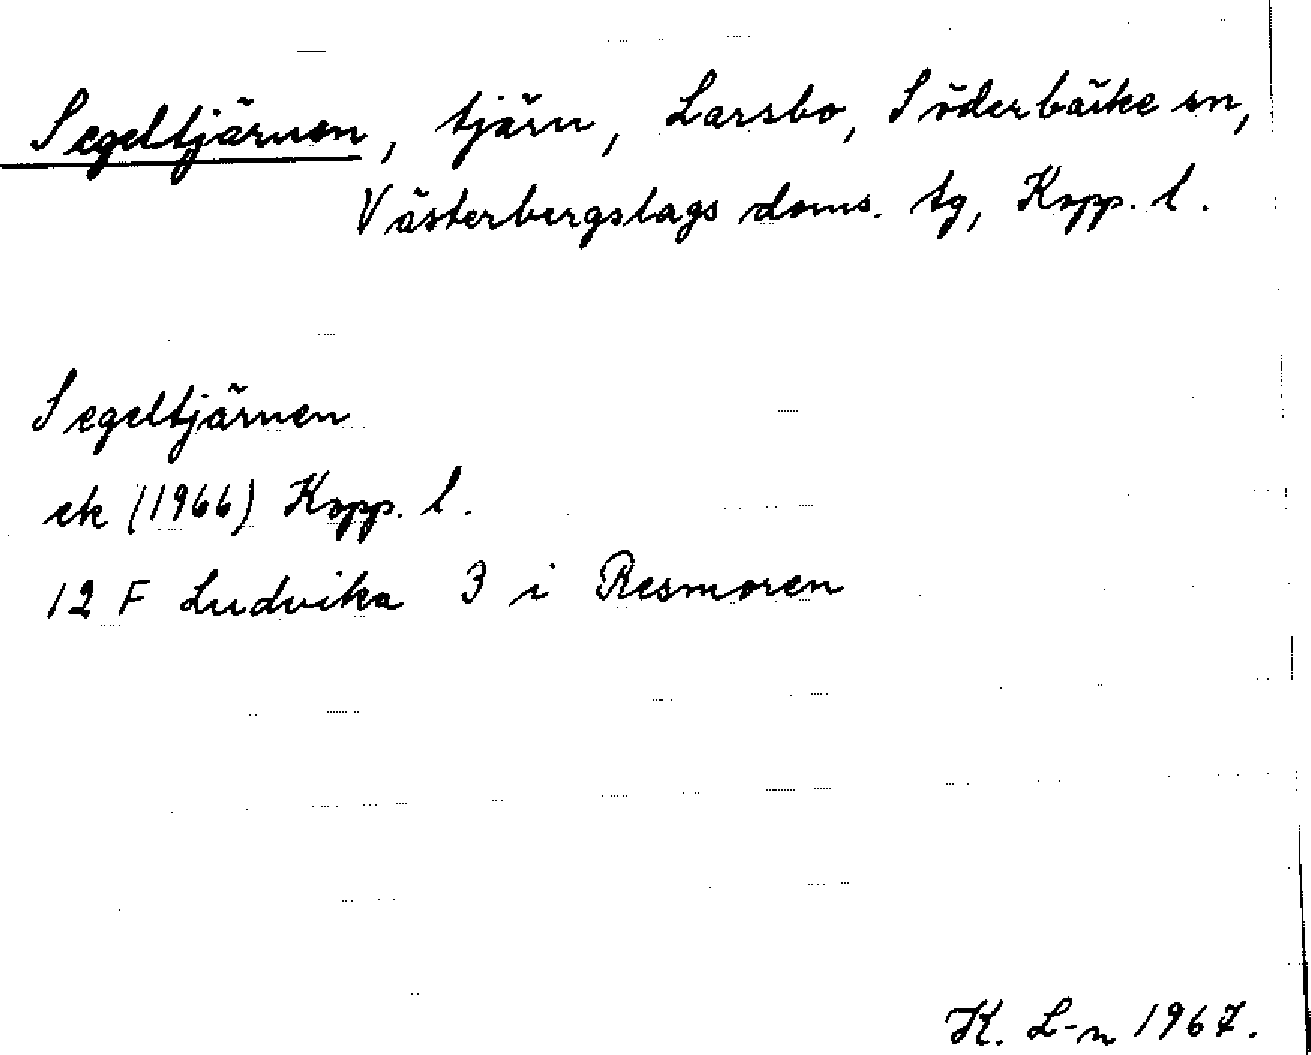 Segeltjärnen, tjärn, Larsbo, Söderbärke sn,
Västerbergslags doms. tg, Kopp. l.
Segeltjärnen
ek (1966) Kopp. l.
12 F Ludvika 3 i Resmoren
K. L-n 1967.